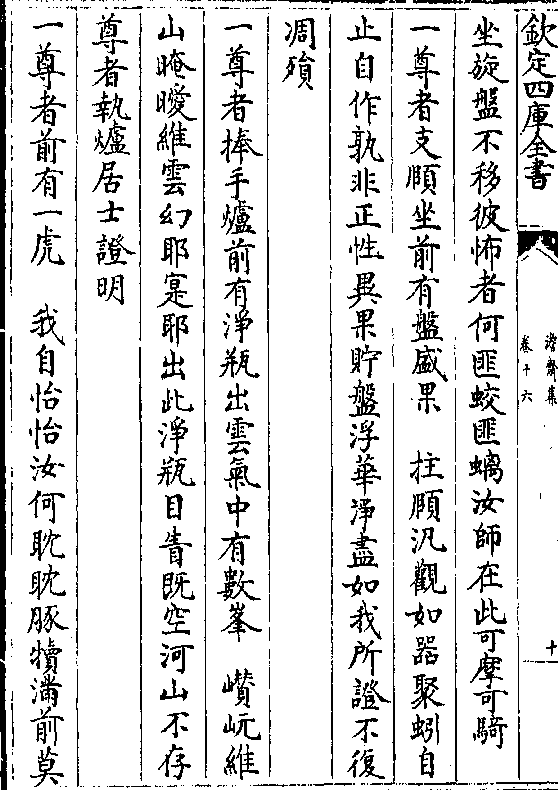 欽定四庫全書
澹齋集
卷十六
十
坐旋盤不移彼怖者何匪蛟匪螭汝師在此可摩可騎
一尊者支頤坐前有盤盛果　拄頤汎觀如器聚蚓自
止自作孰非正性異果貯盤浮華淨盡如我所證不復
凋殞
一尊者捧手爐前有淨瓶出雲氣中有數峯　巑岏維
山晻曖維雲幻耶寔耶出此淨瓶目眚既空河山不存
尊者執爐居士證明
一尊者前有一虎　我自怡怡汝何耽耽豚犢滿前莫